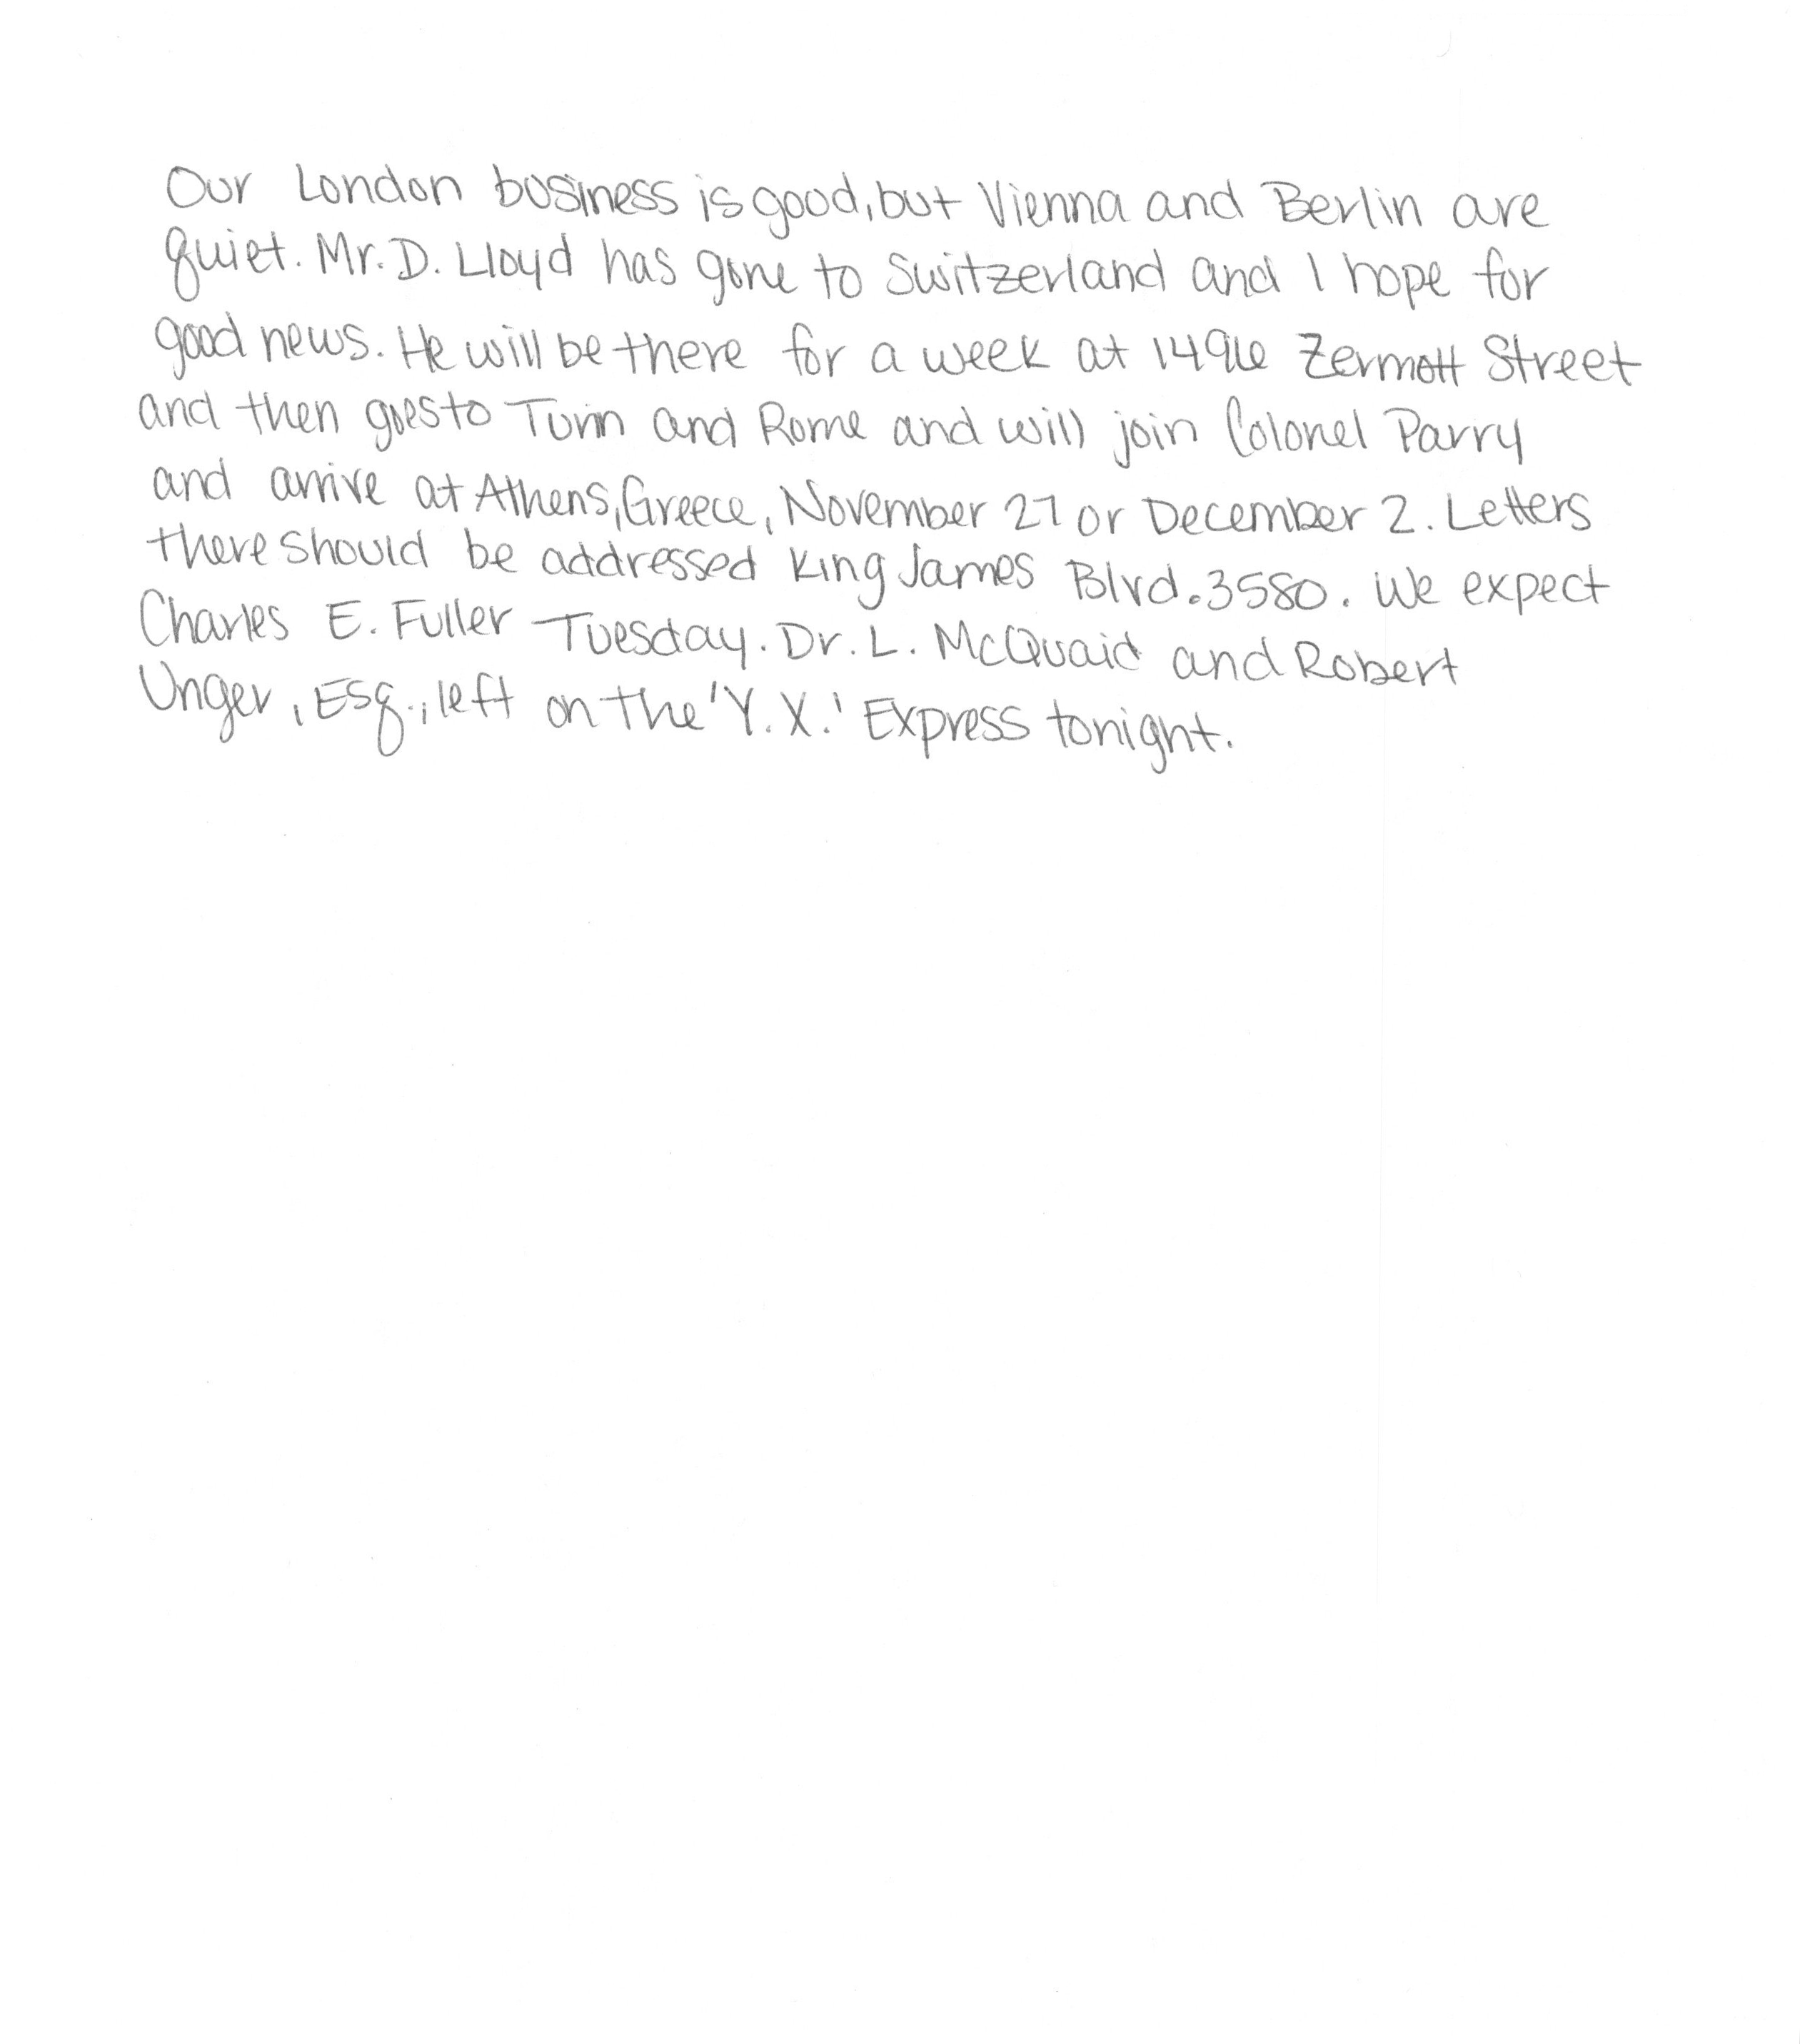 Our London business is good, but Vienna and Berlin are
quiet. Mr. D. Lloyd has gone to Switzerland and I hope for
good news. He will be there for a week at 1496 Zermott Street
and then goes to Turin and Rome and will join Colonel Parry
and arrive at Athens, Greece, November 27 or December 2. Letters
there should be addressed King James Blvd. 3580. We expect
Charles E. Fuller Tuesday. Dr. L. McQuaid and Robert
Unger, Esq., left on the 'Y. X.' Express tonight.